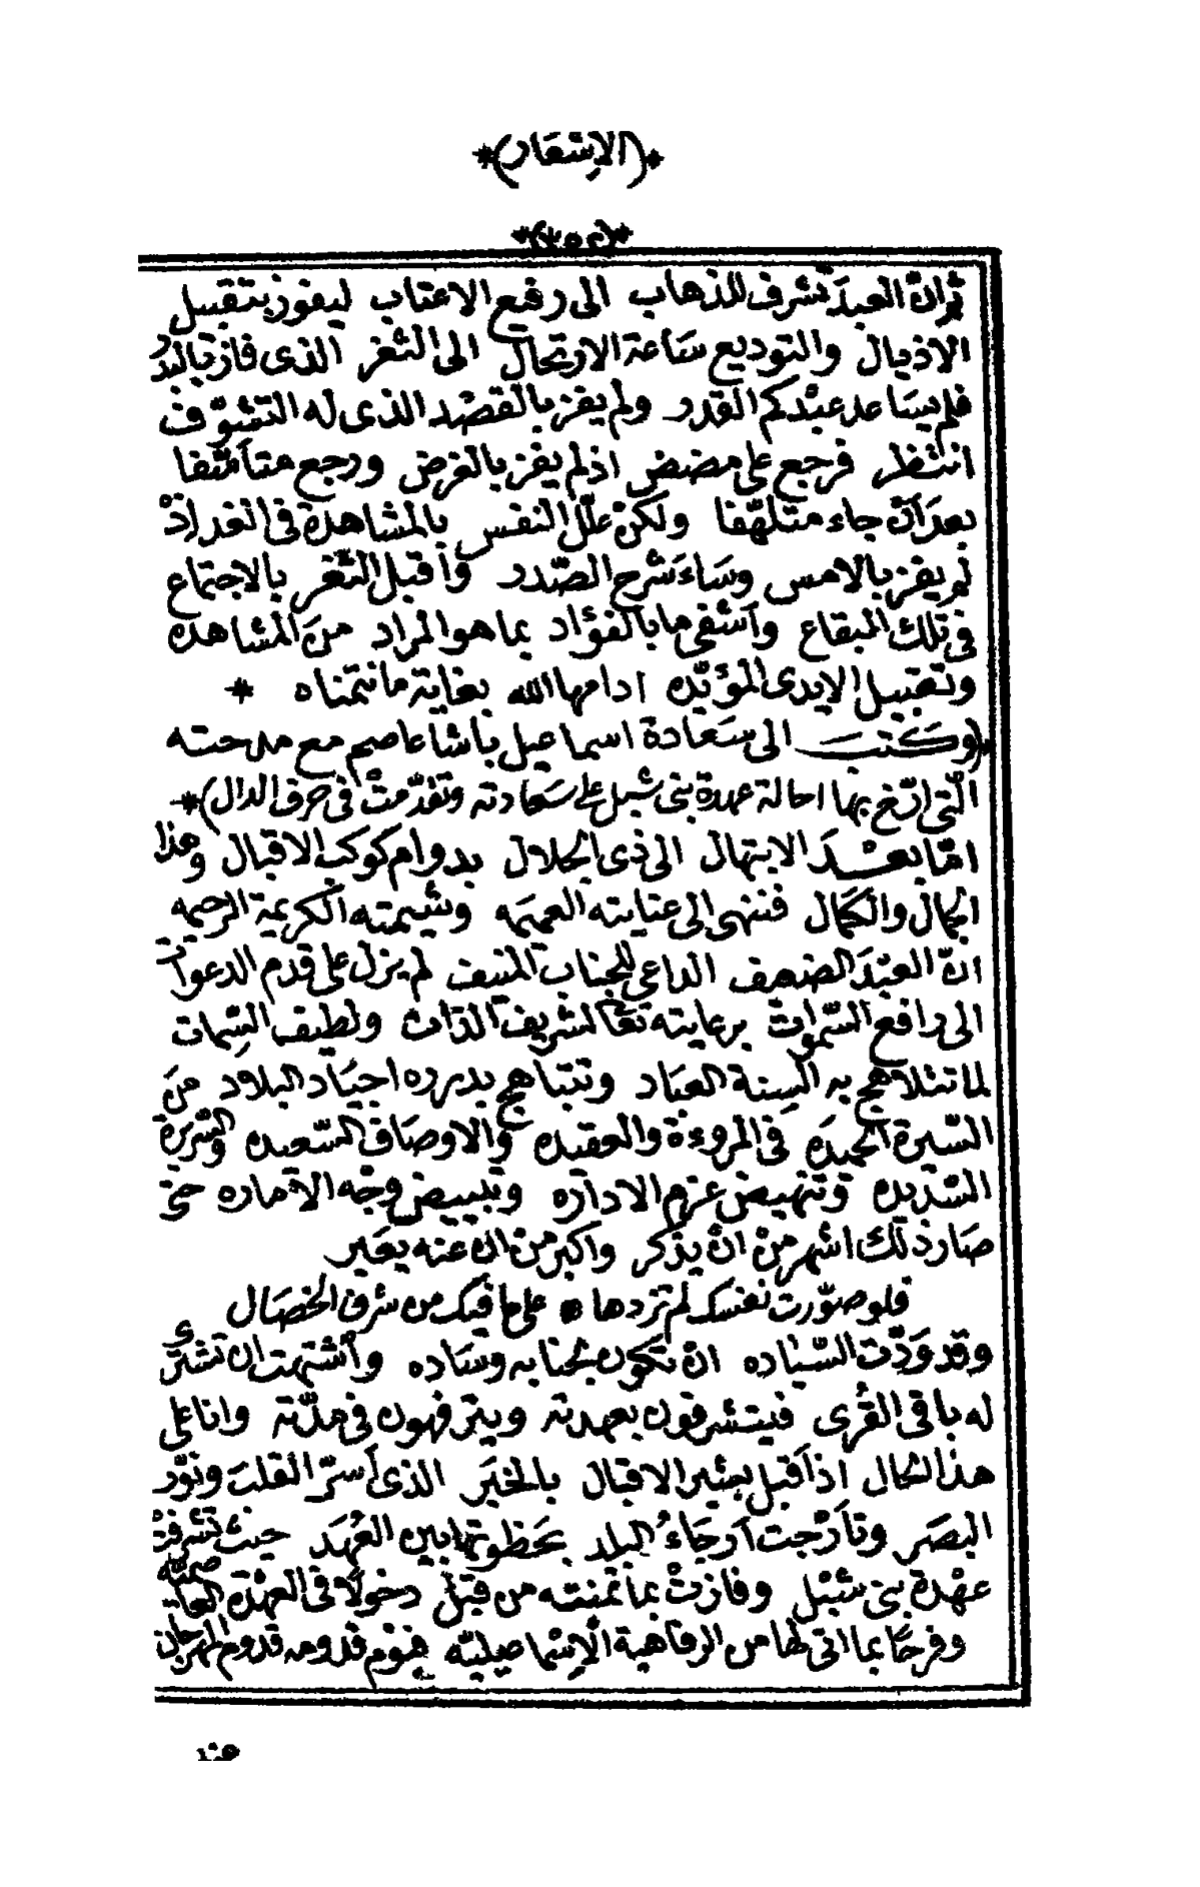 *(الإشعار)*
*(٢٥٣)*
ثم ان العبد تشرف للذهاب الى رفيع الاعتاب ليفوز بتقبيل
الاذيال والتوديع ساعة الارتحال الى الثغر الذى فاز بالبدر
فلم يساعد عبدكم القدر ولم يفز بالقصد الذى له التشوّف
انتظر فرجع على مضض اذلم يفز بالغرض ورجع متأسّفا
بعد أن جاء متلهّفا ولكنْ علّل النفس بالمشاهدة فى الغد اذْ
لم يفز بالامس وساءَ شرح الصّدر وأقبل الثّغر بالاجتماع
فى تلك البقاع وأشفى ما بالفؤاد بما هو المراد من المشاهده
وتقبيل الايدى المؤيّده ادامها الله بغاية ما نتمناه *
*(وكتبَ الى سَعادة اسماعيل باشا عاصم مع مدحته
الّتى ارّخ بها احالة عهدة بنى شبل على سعادته وتقدّمتْ فى حرف الدال)*
امّا بعْد الابتهال الى ذى الجلال بدوام كوكب الاقبال وهذا
الجمال والكمال فننهى الى عنايته العميمه وشيمته الكريمة الرحيمه
انّ العبْد الضعيف الداعى للجناب المنيف لم يزل على قدم الدعوات
الى رافع السّموات برعايته تعالى لشريف الذات ولطيف السّمات
لما تتلاهج به السنة العباد وتتباهج بدرره اجياد البلاد منَ
السّيرة الحميده فى المروءة والعقيده والاوصاف السّعيده والسّريرة
السّديده وتنهيض عزم الاداره وتبييض وجْه الاماره حتى
صار ذلك اشهر منْ انْ يذكر واكبر من ان عنه يعَبر
فلو صوّرت نفسك لم تزدها * على ما فيك من شرف الخصال
وقد وَدّت السّياده انْ تكون بجنابه وساده وأشتهت ان تشترى
له باقى القُرى فيتشرفون بعهدته ويترفهون فى مدّته وانا على
هذا الحال اذ أقبل بشير الاقبال بالخبَر الذى أسرّ القلبَ ونوّر
البصَر وتأرّجت أرجاءُ البلد بحَظوتها بين العُهَد حيث تشرفتْ
عهْدة بنى شبْل وفازتْ بما تمنته من قبل دخولاً فى العهْدة العاصميّه
وفرحًا بما اتى لها من الرفاهية الإسماعيليّه فيوم قدومه قدوم المهرجان
عند